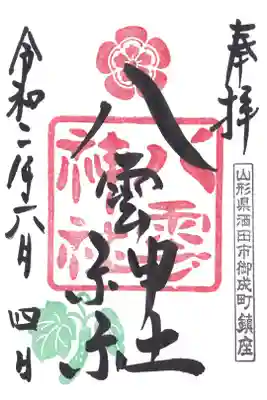 奉拝
山形県酒田市御成町鎮座
八雲神社
八雲神社
令和二年六月四日